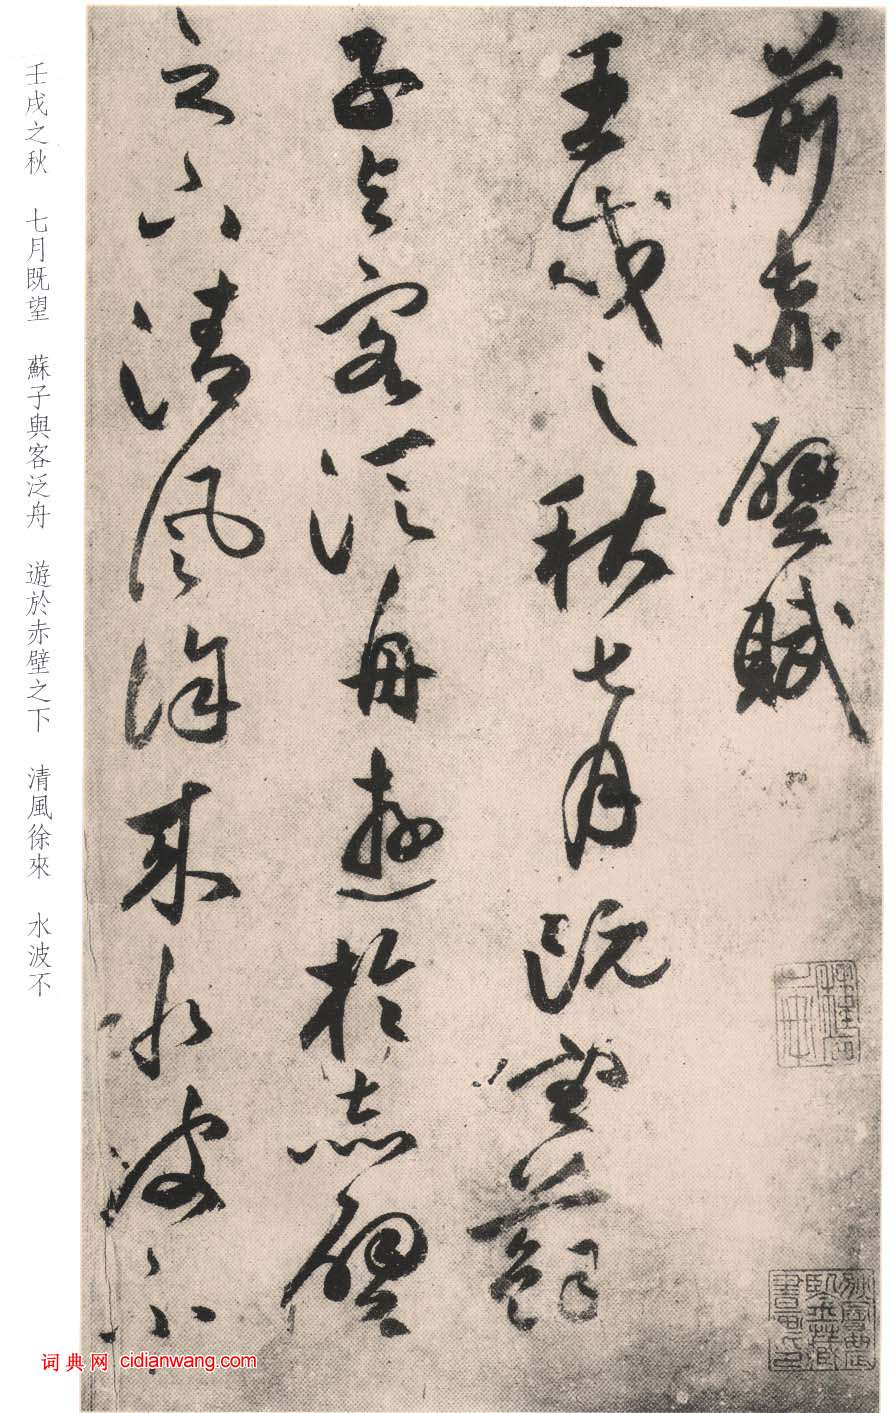 前赤壁賦
壬戌之秋七月既望蘇
子與客泛舟遊於赤壁
之下清風徐來水波不
壬戌之秋 七月既望 蘇子與客泛舟 遊於赤壁之下 清風徐來 水波不
词典网 cidianwang.com